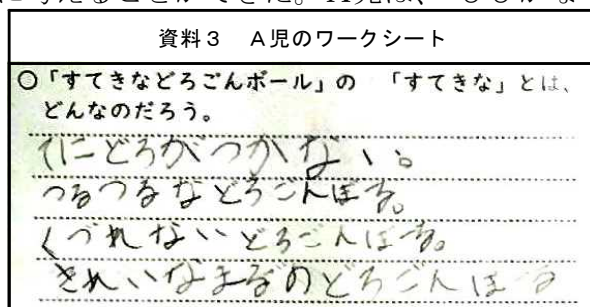 に考えることができた。A児は、
資料3　A児のワークシート
○「すてきなどろごんボール」の　「すてきな」とは、
どんなのだろう。
てにどろがつかない。
つるつるなどろごんぼる。
くづれないどろごんぼる。
きれいなまるのどろごんぼる